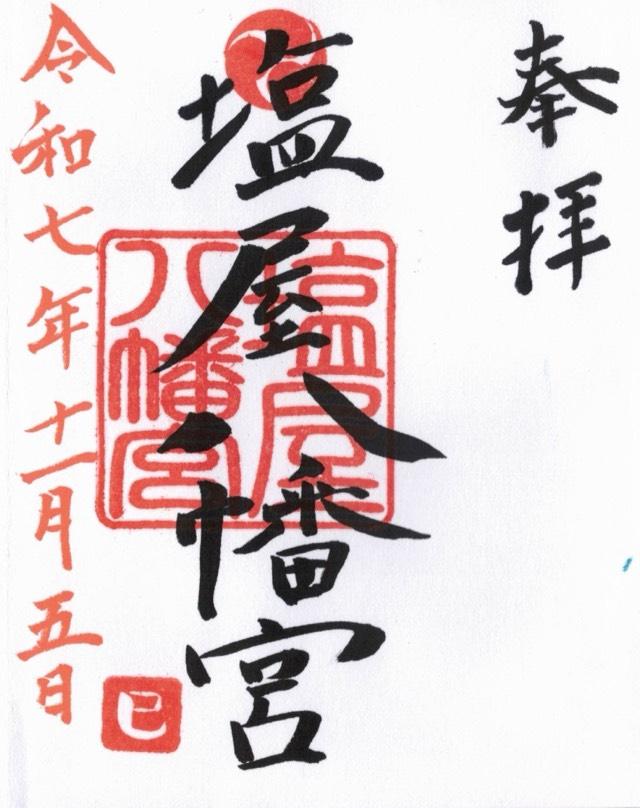 奉拝
塩屋八幡宮
塩屋八幡宮
令和七年十一月五日
巳